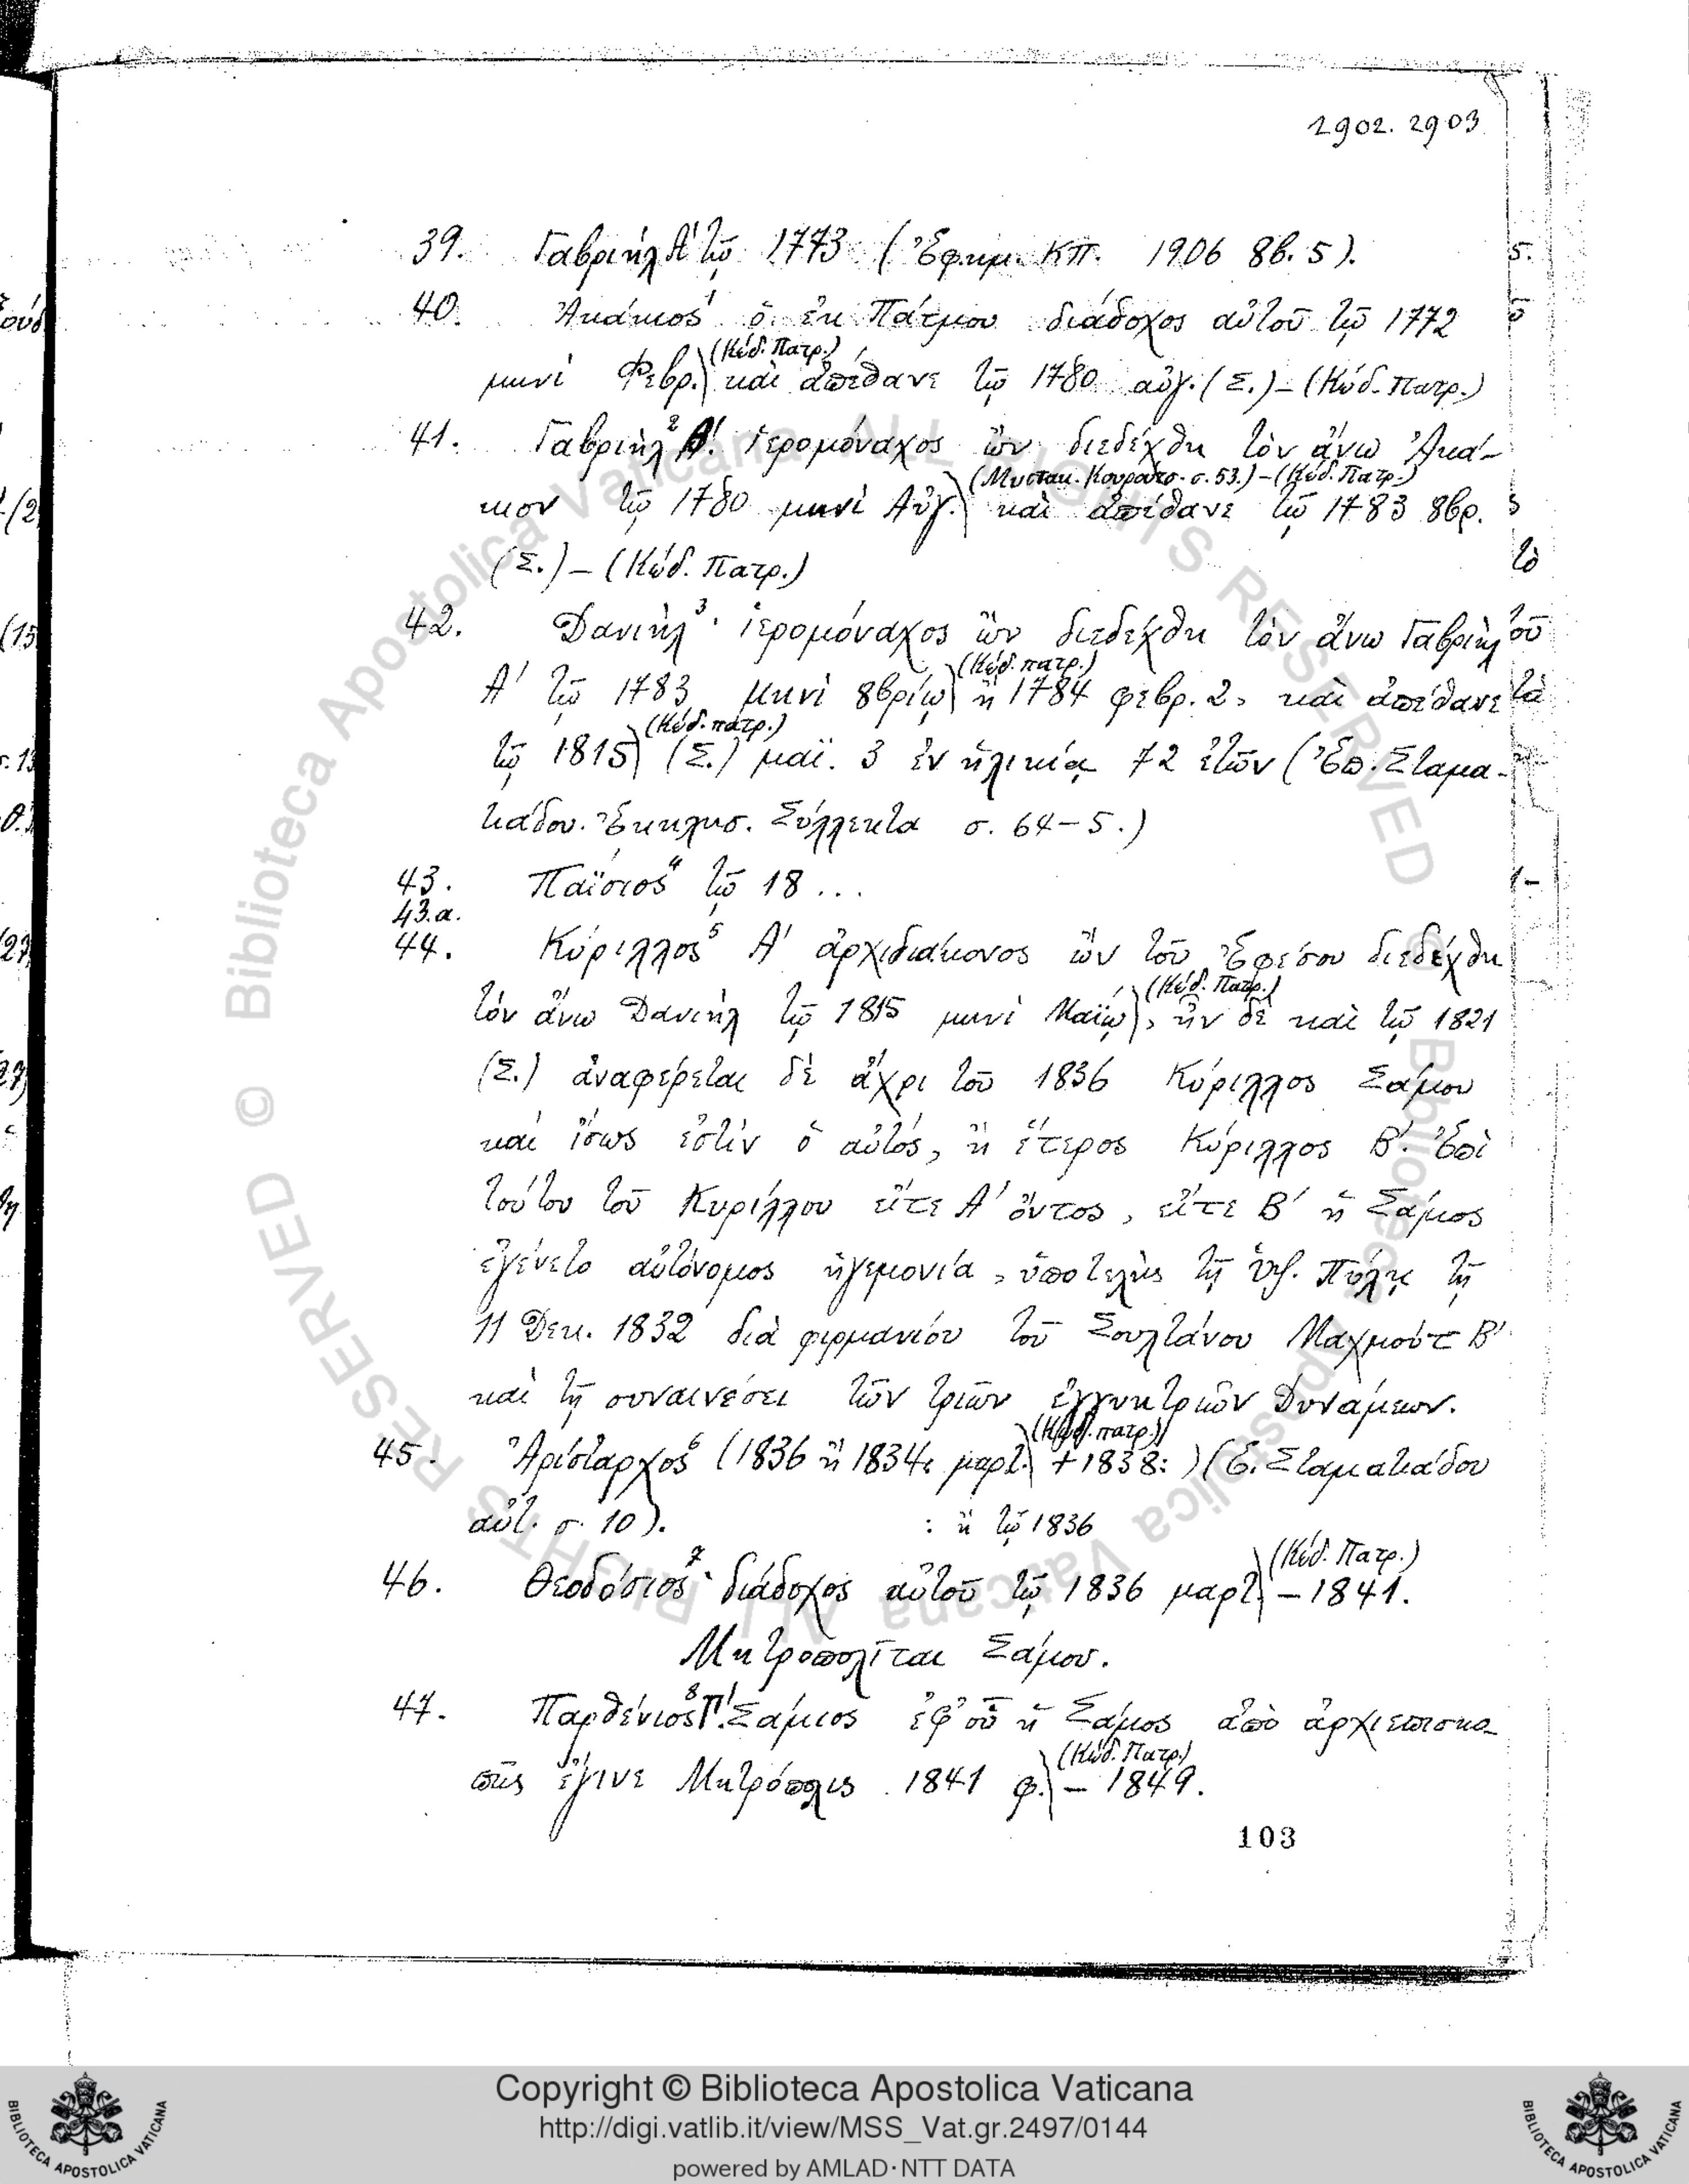 2902. 2903
39. Γαβριὴλ Α' τῷ 1773 (Ἐφημ. ΚΠ. 1906 8β. 5).
40. Ἀκάκιος¹ ὁ ἐκ Πάτμου διάδοχος αὐτοῦ τῷ 1772
μηνὶ Φεβρ. (Κώδ. Πατρ.) καὶ ἀπέθανε τῷ 1780 αὐγ. (Σ.) – (Κώδ. Πατρ.)
41. Γαβριὴλ² Β'. ἱερομόναχος ὢν διεδέχθη τὸν ἄνω Ἀκά-
κιον τῷ 1780 μηνὶ Αὐγ. (Μυστακ. Κουρούτσ. σ. 53.) – (Κώδ. Πατρ.) καὶ ἀπέθανε τῷ 1783 8βρ.
(Σ.) – (Κώδ. Πατρ.)
42. Δανιὴλ³· ἱερομόναχος ὢν διεδέχθη τὸν ἄνω Γαβριὴλ
Α' τῷ 1783 μηνὶ 8βρίῳ (Κώδ. πατρ.) ἢ 1784 φεβρ. 2, καὶ ἀπέθανε
τῷ 1815 (Κώδ. πατρ.) (Σ.) μαΐ. 3 ἐν ἡλικίᾳ 72 ἐτῶν (Ἐπ. Σταμα-
τιάδου. Ἐκκλησ. Σύλλεκτα σ. 64–5.)
43. Παΐσιος⁴ τῷ 18...
43.α.
44. Κύριλλος⁵ Α' ἀρχιδιάκονος ὢν τοῦ Ἐφέσου διεδέχθη
τὸν ἄνω Δανιὴλ τῷ 1815 μηνὶ Μαΐῳ (Κώδ. Πατρ.), ἦν δὲ καὶ τῷ 1821
(Σ.) ἀναφέρεται δὲ ἄχρι τοῦ 1836 Κύριλλος Σάμου
καὶ ἴσως ἐστὶν ὁ αὐτός, ἢ ἕτερος Κύριλλος Β'. Ἐπὶ
τούτου τοῦ Κυρίλλου εἴτε Α' ὄντος, εἴτε Β' ἡ Σάμος
ἐγένετο αὐτόνομος ἡγεμονία, ὑποτελὴς τῇ ὑψ. Πύλῃ τῇ
11 Δεκ. 1832 διὰ φιρμανίου τοῦ Σουλτάνου Μαχμοὺτ Β'
καὶ τῇ συναινέσει τῶν τριῶν ἐγγυητριῶν Δυνάμεων.
45. Ἀρίσταρχος⁶ (1836 ἢ 1834: μαρτ. (Κώδ. πατρ.) + 1838: ) (Ε. Σταματιάδου
αὐτ. σ. 10). : ἢ τῷ 1836
46. Θεοδόσιος⁷· διάδοχος αὐτοῦ τῷ 1836 μαρτ. (Κώδ. Πατρ.) – 1841.
Μητροπολῖται Σάμου.
47. Παρθένιος⁸ Γ'. Σάμιος ἐφ' οὗ ἡ Σάμος ἀπὸ ἀρχιεπισκο-
πῆς ἔγινε Μητρόπολις 1841 φ. (Κώδ. Πατρ.) – 1849.
103
Copyright © Biblioteca Apostolica Vaticana
http://digi.vatlib.it/view/MSS_Vat.gr.2497/0144
powered by AMLAD·NTT DATA
BIBLIOTECA APOSTOLICA VATICANA
BIBLIOTECA APOSTOLICA VATICANA
© Biblioteca Apostolica Vaticana ALL RIGHTS RESERVED
© Biblioteca Apostolica Vaticana ALL RIGHTS RESERVED